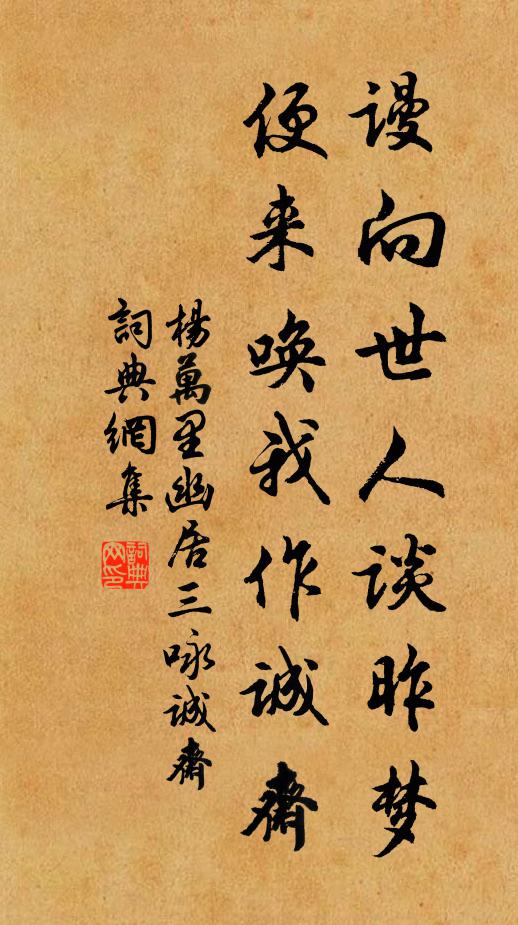 谩向世人谈昨梦
便来唤我作诚斋
楊萬里幽居三咏诚齋
詞典網集
詞典网印